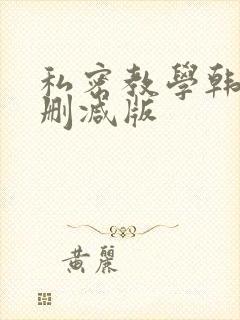 私密教學韩
删减版
黄麗